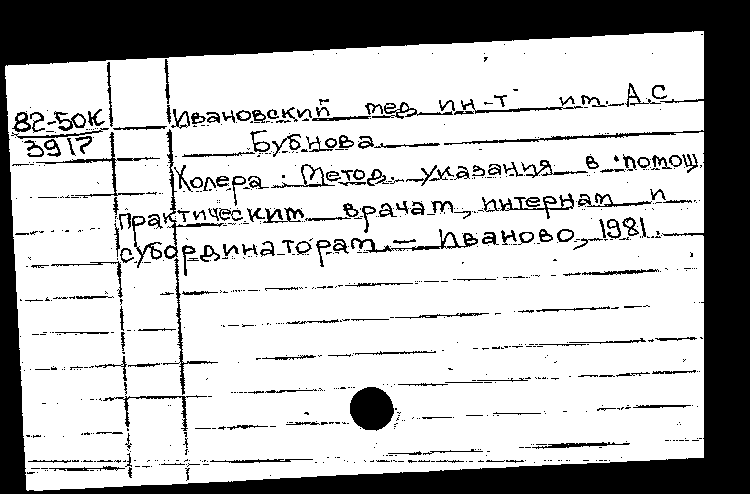 82-50К
3917
Ивановский мед. ин-т им. А.С.
Бубнова.
Холера : Метод. указания в помощ
практическим врачам, интернам и
субординаторам. — Иваново, 1981.